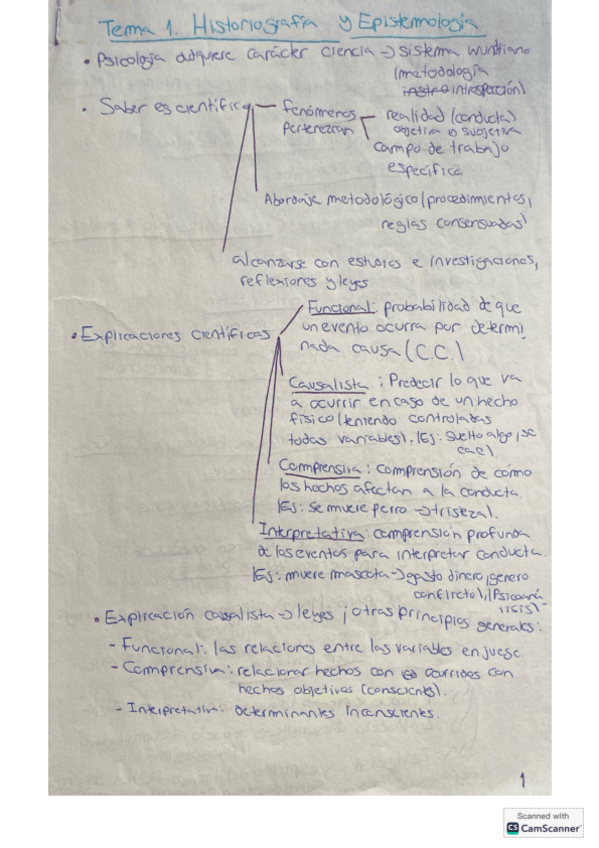 Tema 1. Historiografía y Epistemología
• Psicología adquiere carácter ciencia → sistema wundtiano
(metodología
introspección)
• Saber es científico — fenómenos realidad (conducta)
pertenezcan objetiva o subjetiva
campo de trabajo
específica
Abordaje metodológico (procedimientos,
reglas consensuadas)
alcanzarse con estudios e investigaciones,
reflexiones y leyes
Funcional: probabilidad de que
• Explicaciones científicas un evento ocurra por determi
nada causa (C.C.)
Causalista: Predecir lo que va
a ocurrir en caso de un hecho
físico (teniendo controladas
todas variables). (Ej: suelto algo, se
cae)
Comprensiva: comprensión de cómo
los hechos afectan a la conducta.
(Ej: se muere perro → tristeza).
Interpretativa: comprensión profunda
de los eventos para interpretar conducta.
(Ej: muere mascota → gasto dinero, genero
conflicto), (Psicoaná
lisis)
• Explicación causalista → leyes; otras principios generales:
- Funcional: las relaciones entre las variables en juego.
- Comprensiva: relacionar hechos con ocurridos con
hechos objetivos (conscientes).
- Interpretativa: determinantes inconscientes.
1
Scanned with
CS CamScanner